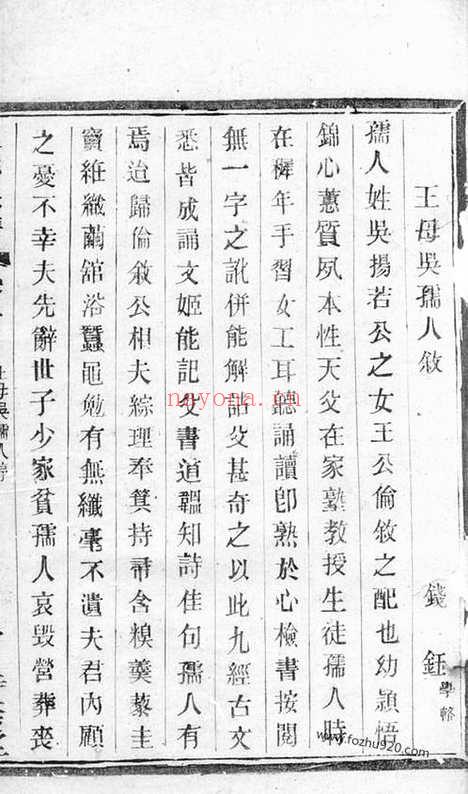 王母吳孺人敘
錢 鈺 學幹
孺人姓吳揚若公之女王公倫敘之配也幼穎悟
錦心蕙質夙本性天父在家塾教授生徒孺人時
在穉年手習女工耳聽誦讀卽熟於心檢書按閱
無一字之訛併能解詁父甚奇之以此九經古文
悉皆成誦文姬能記父書道韞知詩佳句孺人有
焉迨歸倫敘公相夫綜理奉箕持帚含糗羹藜圭
竇維織繭舘浴蠶黽勉有無纖毫不遺夫君內顧
之憂不幸夫先辭世子少家貧孺人哀毀營葬喪
母吳孺人
nayona.cn
www.fozhu920.com